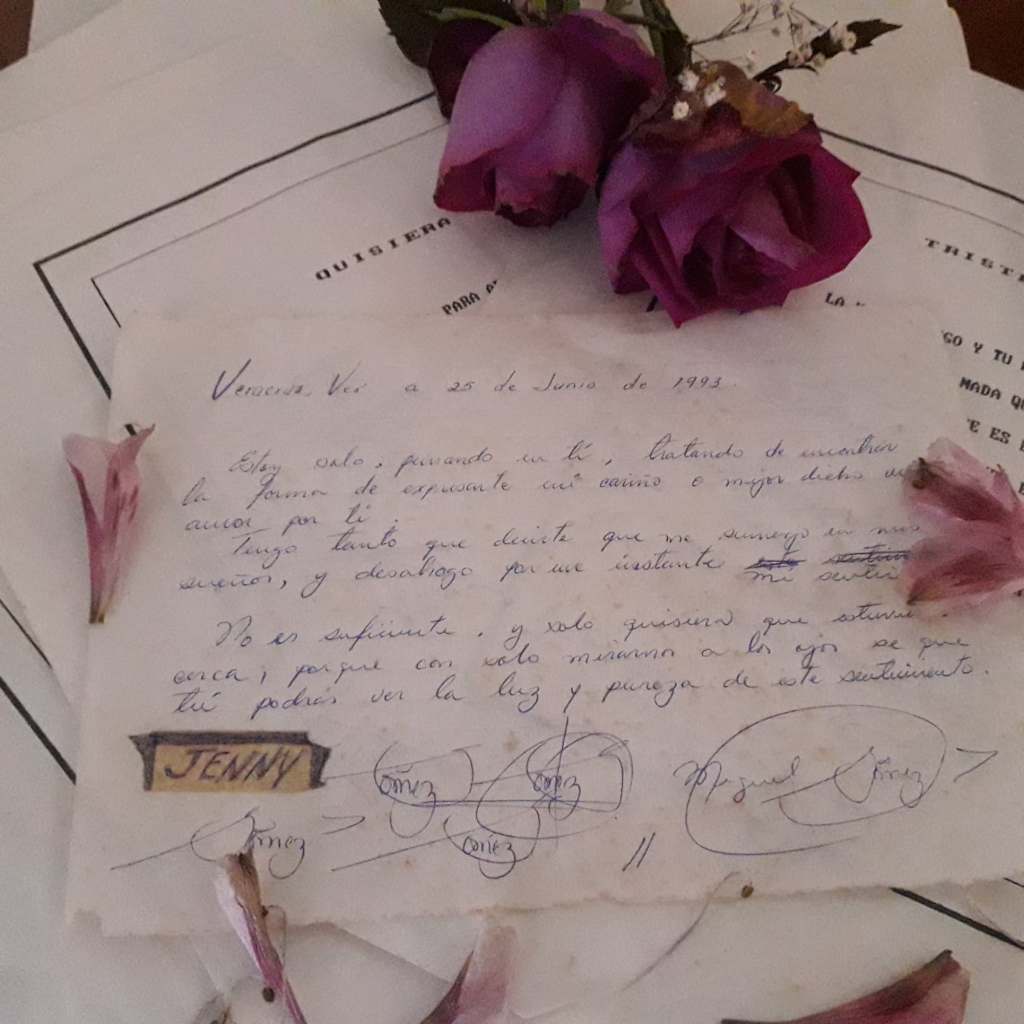 QUISIERA
TRISTE
PARA
LA
GO Y TU
MADA QU
E ES
Veracruz, Ver a 25 de Junio de 1993.
Estoy solo, pensando en tí, tratando de encontrar
la forma de expresarte mi cariño o mejor dicho
amor por tí.
Tengo tanto que decirte que me sumerjo en mis
sueños, y desahogo por un instante
mi senti
No es suficiente, y solo quisiera que
cerca, porque con solo mirarnos a los ojos se que
tú podrás ver la luz y pureza de este sentimiento.
JENNY
Gómez
Gómez
Miguel Gómez
Gómez
Gómez